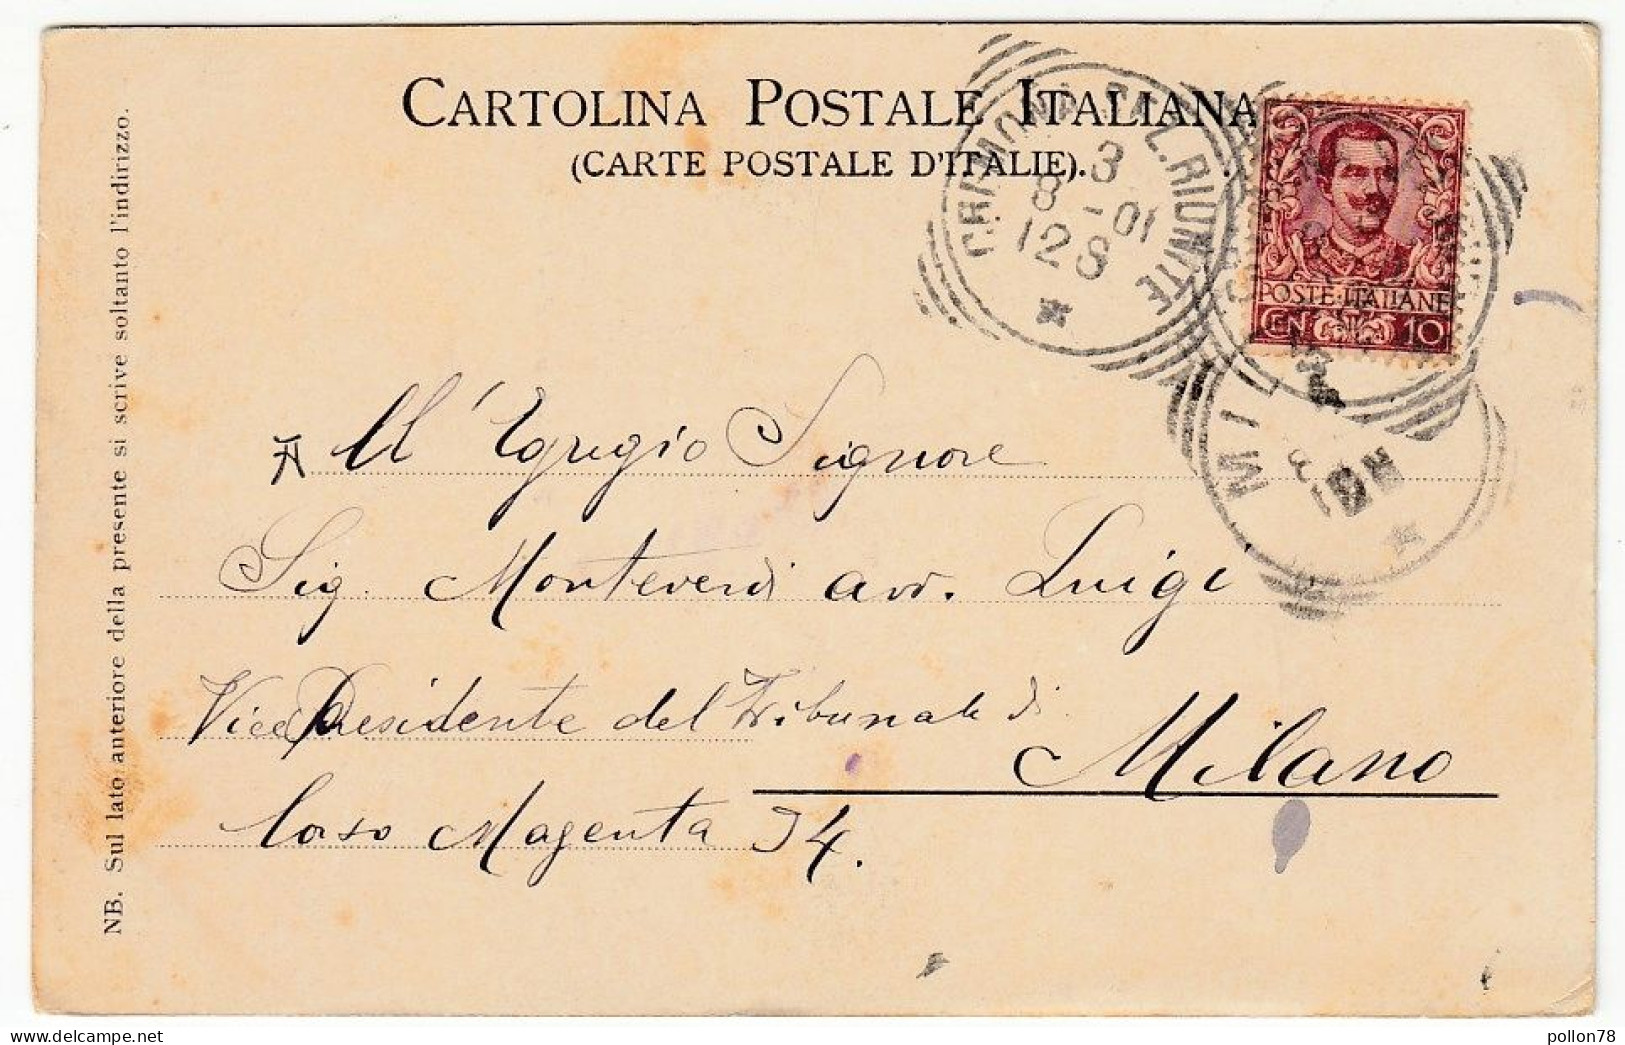 CARTOLINA POSTALE ITALIANA
(CARTE POSTALE D'ITALIE).
NB. Sul lato anteriore della presente si scrive soltanto l'indirizzo.
CREMONA
RIUNITE
8 3
-01
12 S
POSTE·ITALIANE
CEN 10
MIL
All'Egregio Signore
Sig. Monteverdi avv. Luigi
Vice Presidente del Tribunale di
Milano
Corso Magenta 24.
pollon78